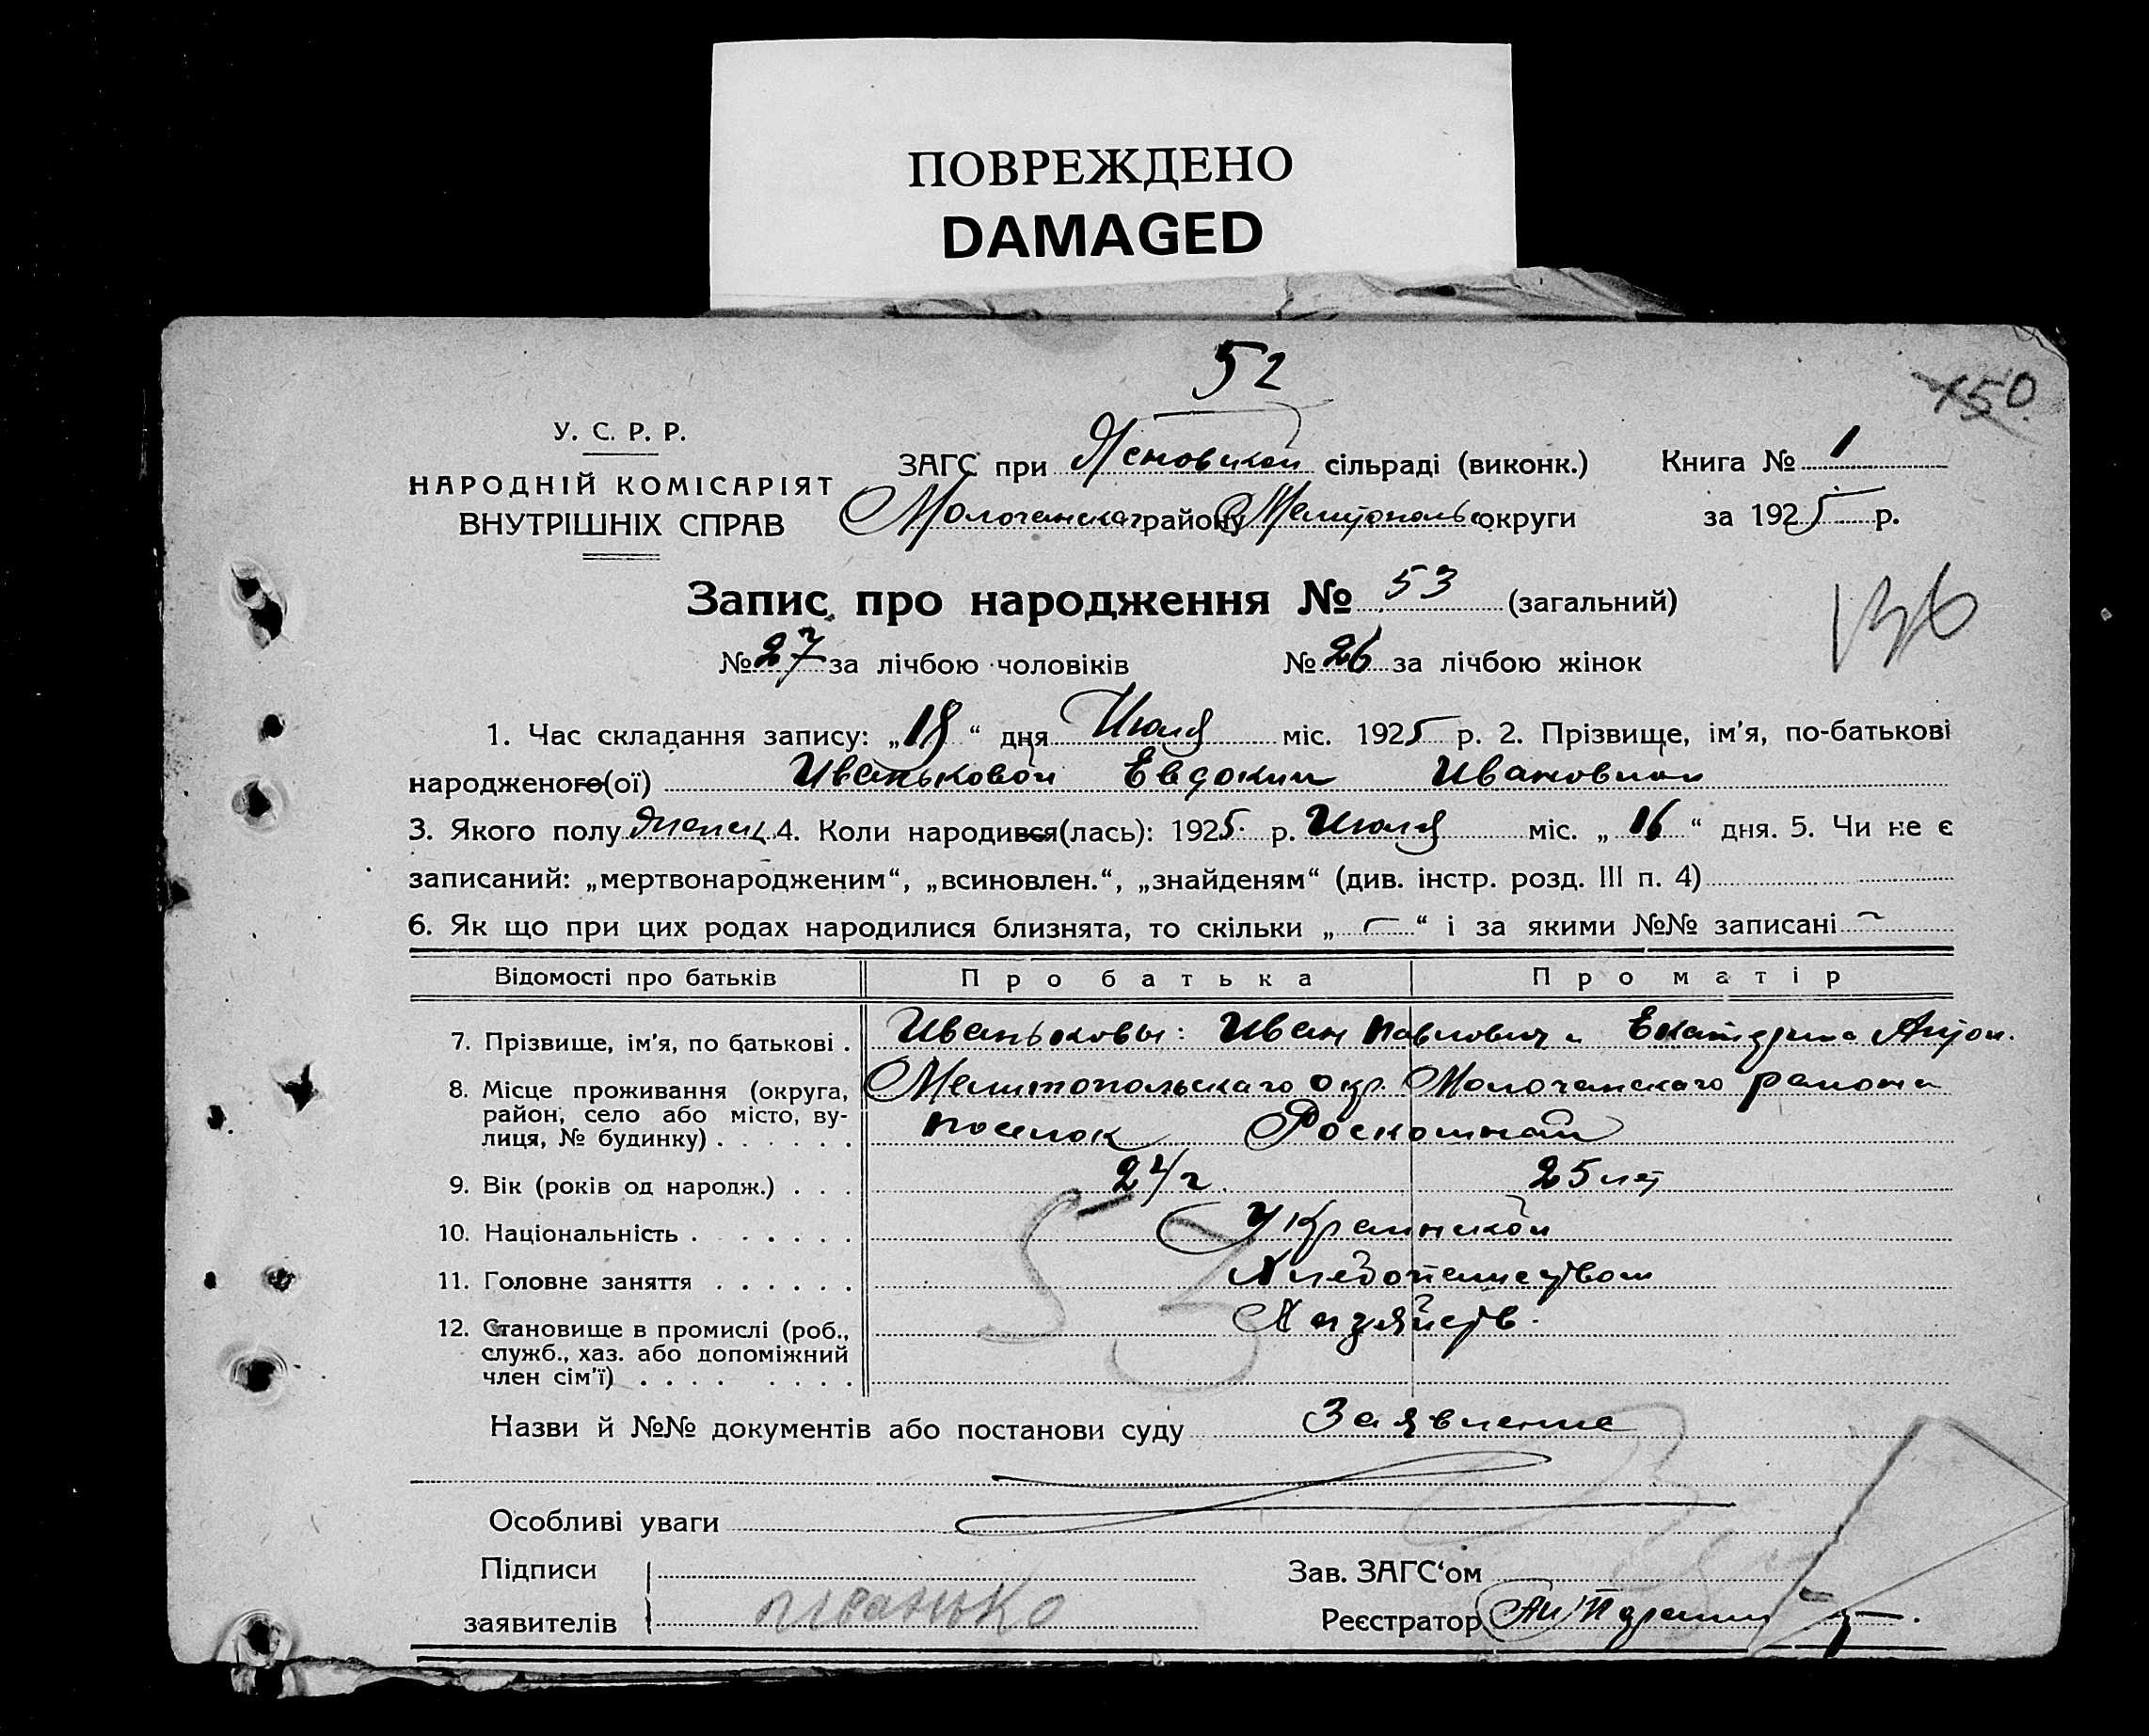 ПОВРЕЖДЕНО
DAMAGED
52
150
У. С. Р. Р.
НАРОДНІЙ КОМІСАРІЯТ
ВНУТРІШНІХ СПРАВ
ЗАГС при сільраді (виконк.) Книга № 1
Молочанскаг району Мелитопольс округи за 1925 р.
Запис про народження № 53 (загальний)
136
№ 27 за лічбою чоловіків № 26 за лічбою жінок
1. Час складання запису: „18“ дня Июля міс. 1925 р. 2. Прізвище, ім'я, по-батькові
народженого(ої) Иваньковой Евдокии Ивановной
3. Якого полу женск 4. Коли народився(лась): 1925 р. Июля міс. „16“ дня. 5. Чи не є
записаний: „мертвонародженим“, „всиновлен.“, „знайденям“ (див. інстр. розд. III п. 4)
6. Як що при цих родах народилися близнята, то скільки „ — “ і за якими №№ записані ~
Відомості про батьків Про батька Про матір
7. Прізвище, ім'я, по батькові . Иваньковы: Иван Павлович и Екатерина Антон.
8. Місце проживання (округа, район, село або місто, вулиця, № будинку) . . . . . . Мелитопольскаго окр. Молочанскаго района
поселок Роскошной
9. Вік (років од народж.) . . . 24 г. 25 лет
10. Національність . . . . . . . Украинской
11. Головне заняття . . . . . . Хлебопашеством
12. Становище в промислі (роб., служб., хаз. або допоміжний член сім'ї) . . . . . . . . Хазяйств.
53
Назви й №№ документів або постанови суду Заявление
Особливі уваги
Підписи
заявителів Иванько
Зав. ЗАГС'ом
Реєстратор